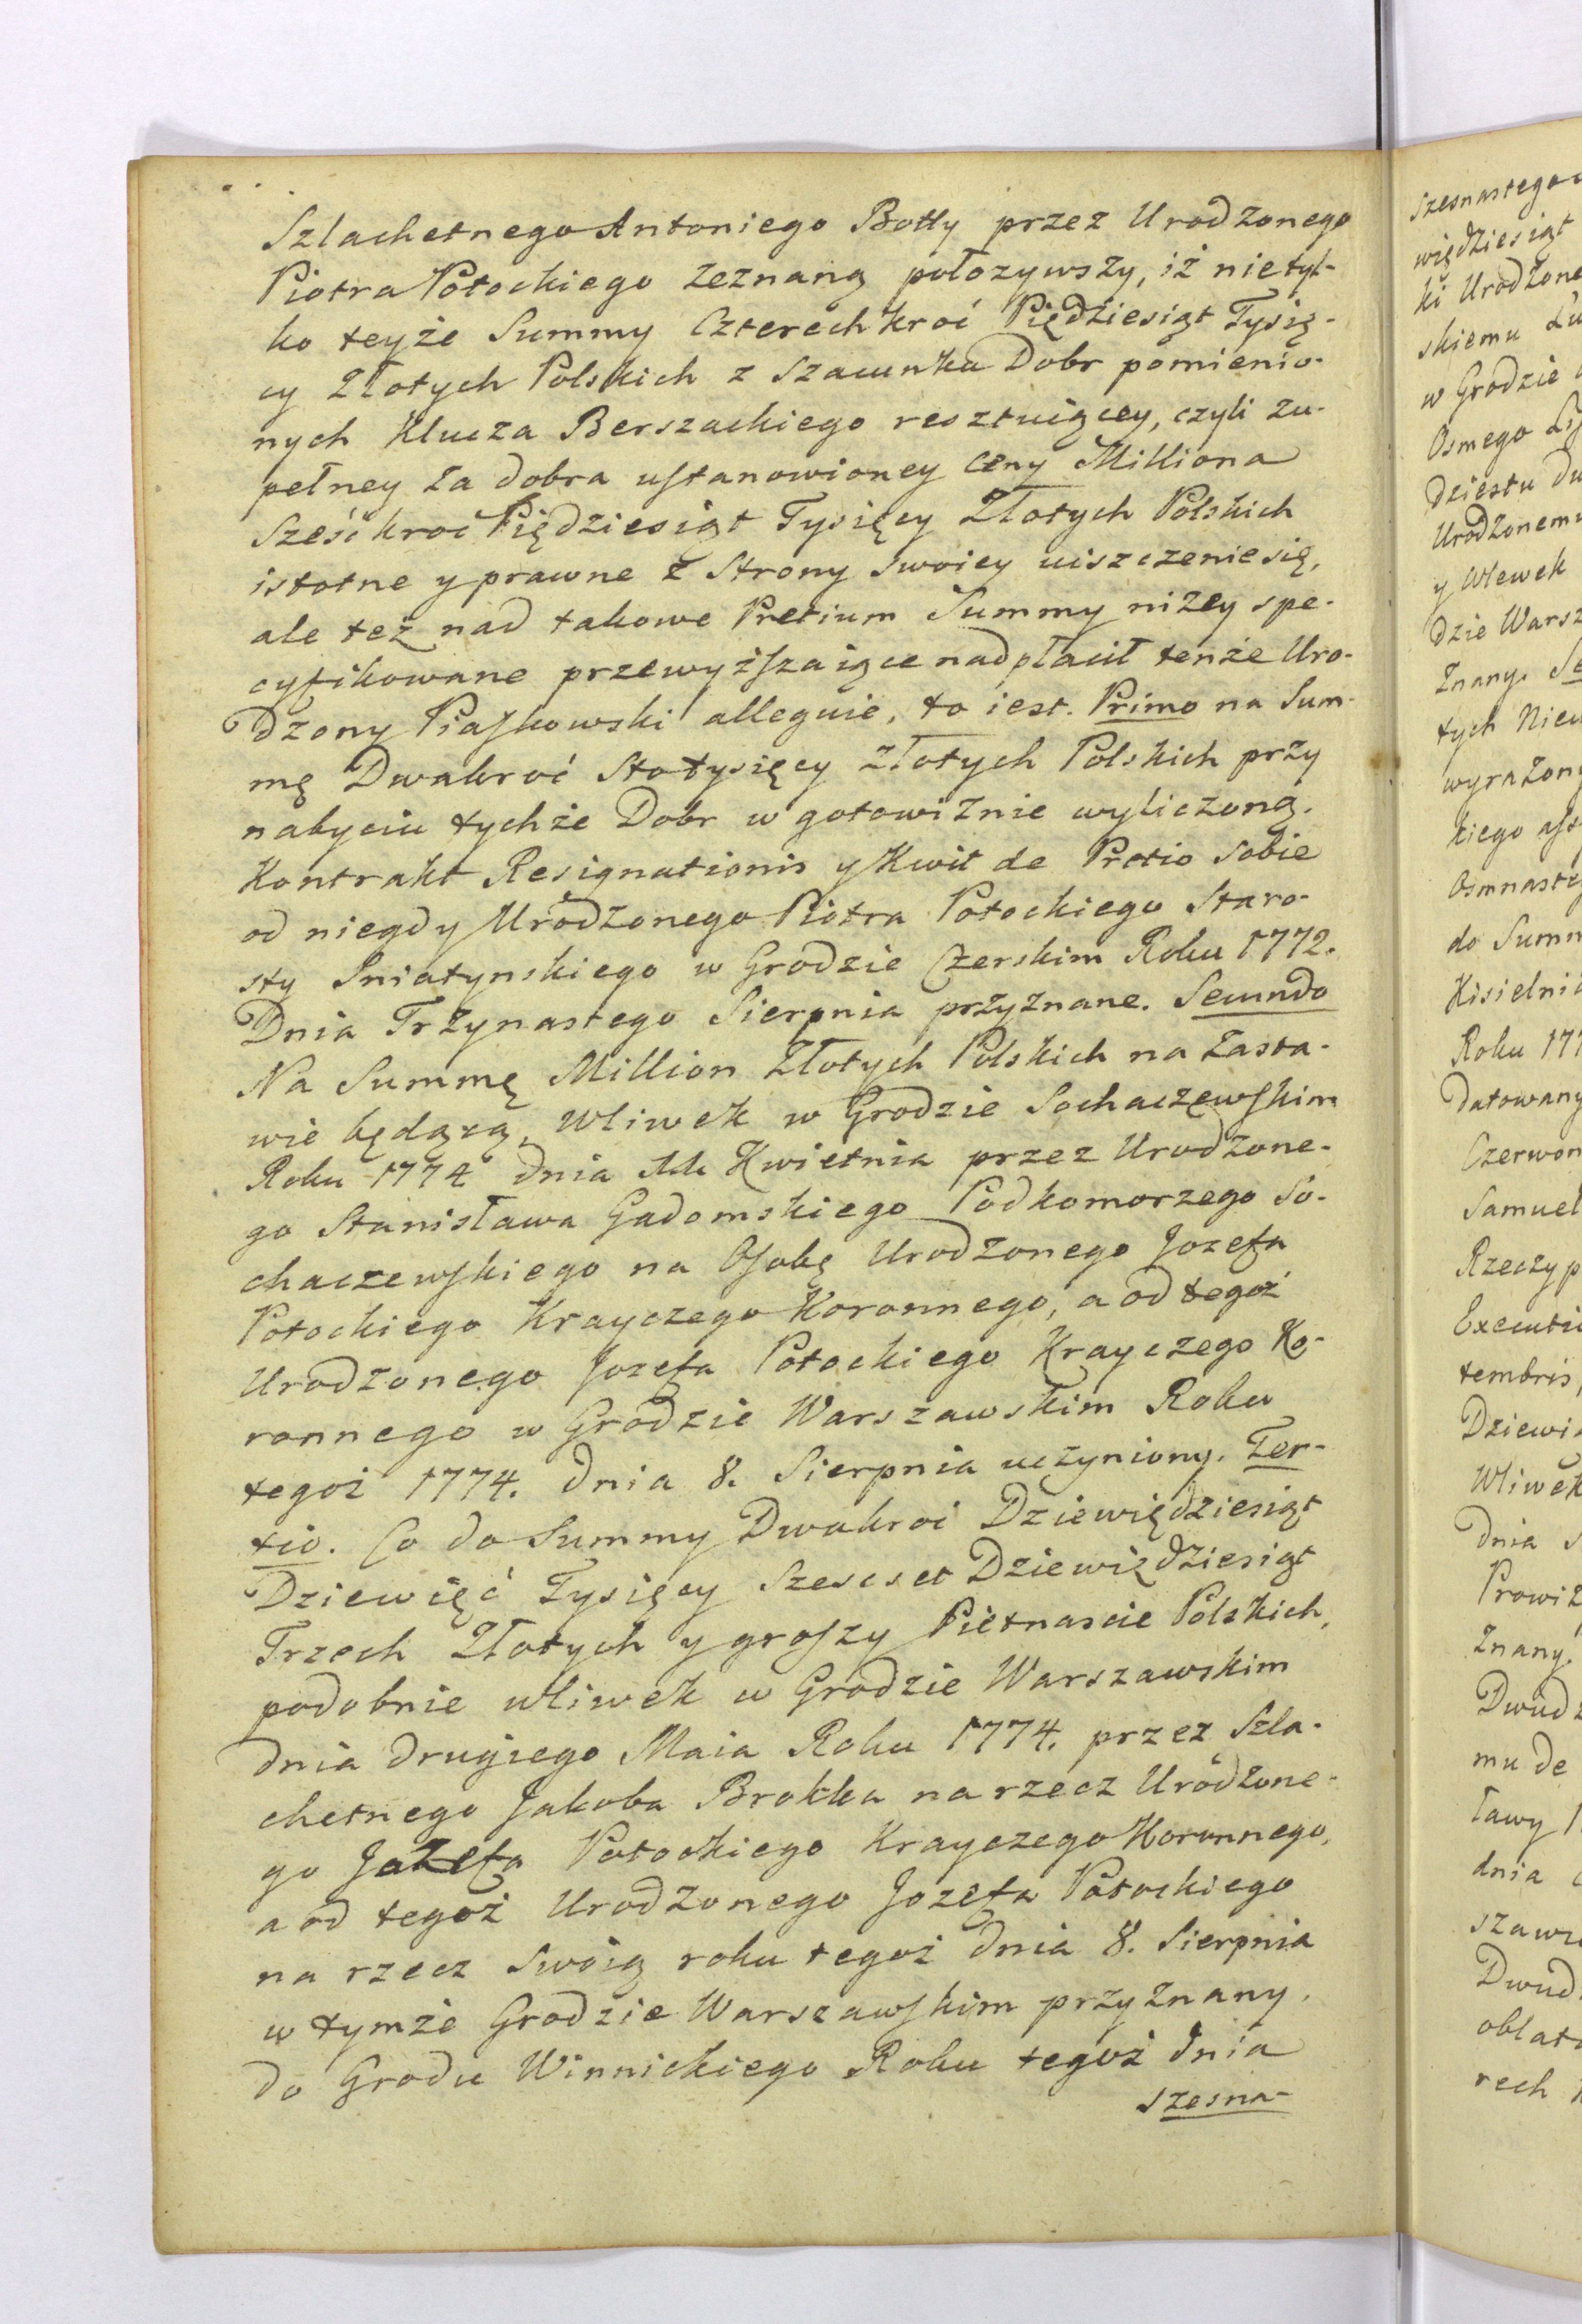 Szlachetnego Antoniego Botty przez Urodzonego
Piotra Potockiego zeznaną położywszy, iż nietyl-
ko teyże Summy Czterechkroć Pięćdziesiąt Tysię-
cy Złotych Polskich z szacunku Dobr pomienio-
nych Klucza Berszackiego resztuiącey, czyli zu-
pełney za dobra ustanowioney ceny Milliona
Sześćkroć Pięćdziesiąt Tysięcy Złotych Polskich
istotne y prawne z Strony swoiey uiszczenie się,
ale też nad takowe Pretium Summy niżey spe-
cyfikowane przewyższaiące nadpłacił tenże Uro-
dzony Piaskowski alleguie, to iest. Primo na Sum-
mę Dwakroć Stotysięcy złotych Polskich przy
nabyciu tychże Dobr w gotowiznie wyliczoną.
Kontrakt Resignationis y Kwit de Pretio sobie
od niegdy Urodzonego Piotra Potockiego Staro-
sty Sniatynskiego w Grodzie Czerskim Roku 1772.
Dnia Trzynastego Sierpnia przyznane. Secundo
Na Summę Million Złotych Polskich na zasta-
wie będącą, Wliwek w Grodzie Sochaczewskim
Roku 1774 dnia 14 Kwietnia przez Urodzone-
go Stanisława Gadomskiego Podkomorzego So-
chaczewskiego na Osobę Urodzonego Jozefa
Potockiego Krayczego Koronnego, a od tegoż
Urodzonego Jozefa Potockiego Krayczego Ko-
ronnego w Grodzie Warszawskim Roku
tegoż 1774. dnia 8. Sierpnia uczyniony. Ter-
tio. Co do Summy Dwakroć Dziewiędziesiąt
Dziewięć Tysięcy Szescset Dziewiędziesiąt
Trzech Złotych y groszy Pietnascie Polskich,
podobnie wliwek w Grodzie Warszawskim
dnia drugiego Maia Roku 1774. przez Szla-
chetnego Jakoba Brokka na rzecz Urodzone-
go Jozefa Potockiego Krayczego Koronnego,
a od tegoż Urodzonego Jozefa Potockiego
na rzecz swoią roku tegoż dnia 8. Sierpnia
w tymże Grodzie Warszawskim przyznany.
do Grodu Winnickiego Roku tegoż dnia
szesna-
szesnastego
więdziesiąt
ki Urodzone
skiemu
w Grodzie
Osmego
dziestu
Urodzonemu
y Wlewek
dzie Warsz
znany.
tych
wyrażony
kiego
Osmnaste
do Summ
Kisielni
Roku 177
datowany
Czerwon
Samuel
Rzeczyp
Executi
tembris,
Dziewi
Wliwek
dnia
Prowiz
znany.
Dwudz
mu de
tawy
dnia
szaw
Dwud
oblat
rech